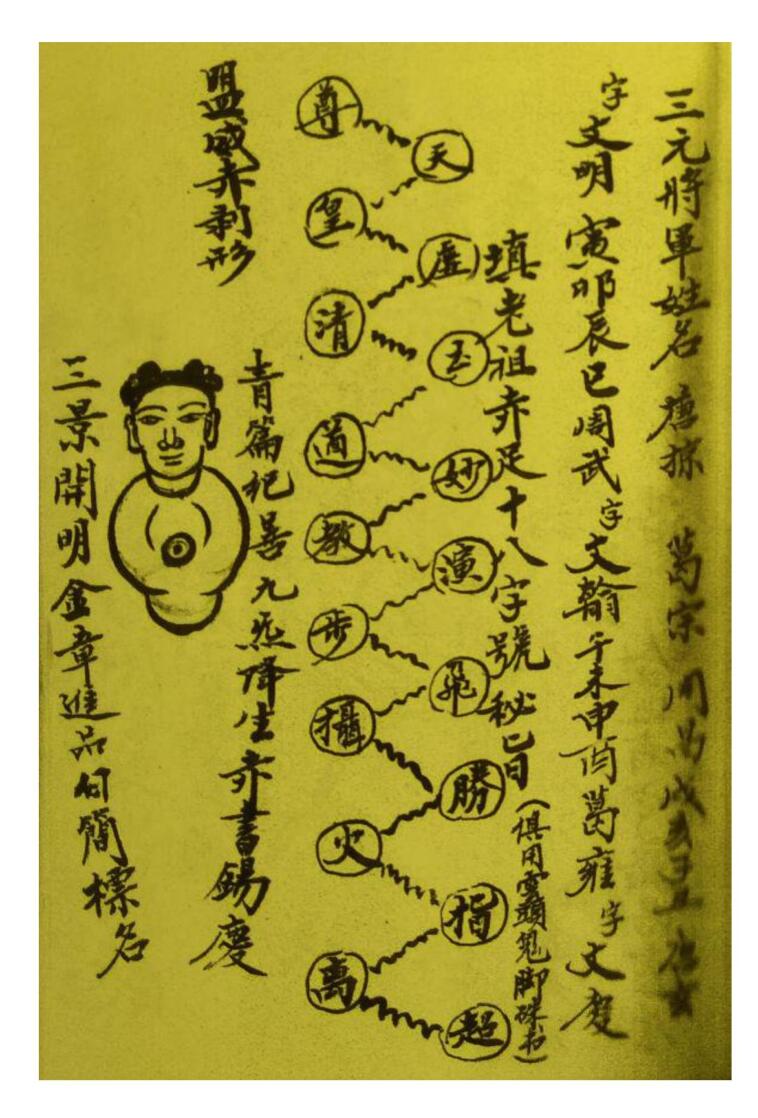 三元將軍姓名 唐 葛宗 周
字文明 寅卯辰巳周武 字文翰 午未申酉葛雍 字文度
填老祖赤足十八字號秘旨(俱用雲頭鬼脚硃書)
天
虛
玉
妙
演
飛
勝
指
超
尊
皇
清
道
教
步
攝
火
离
盟威赤制形
青篇紀善九炁降生赤書錫慶
三景開明金章進品白簡標名